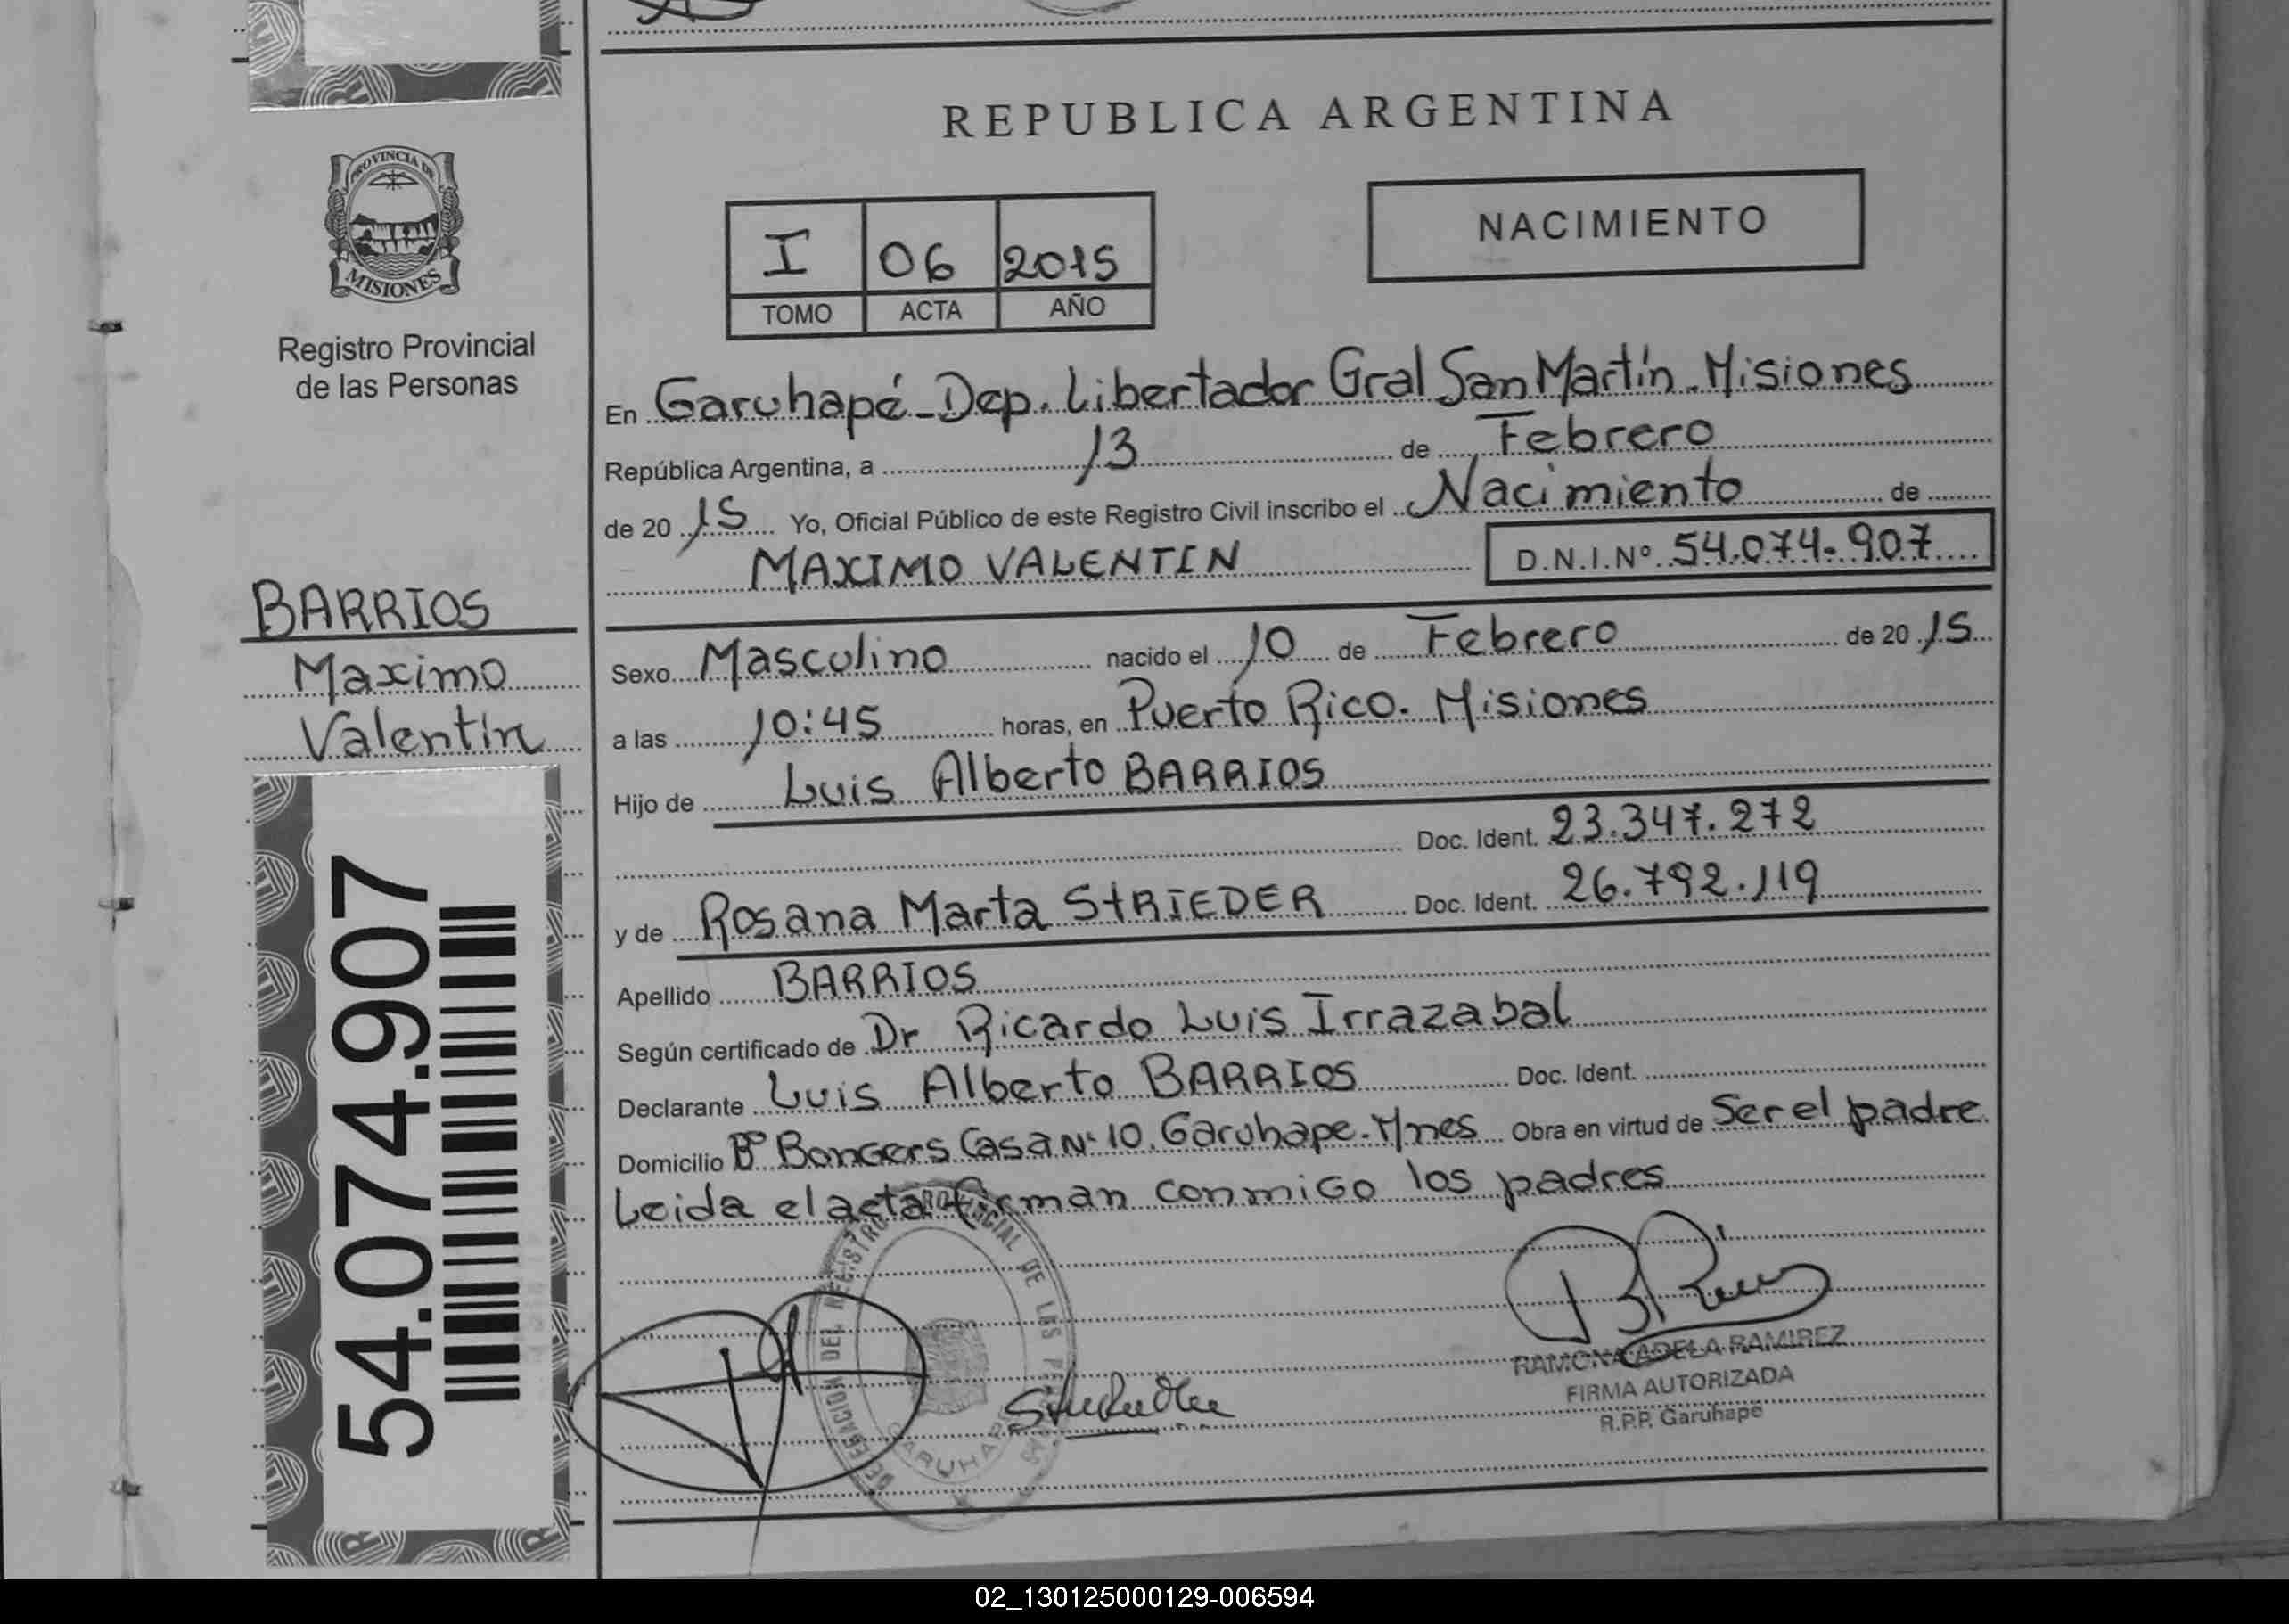 REPUBLICA ARGENTINA
PROVINCIA DE
MISIONES
Registro Provincial
de las Personas
I 06 2015
TOMO ACTA AÑO
NACIMIENTO
En Garuhapé - Dep. Libertador Gral San Martín. Misiones
República Argentina, a 13 de Febrero
de 20 15 Yo, Oficial Público de este Registro Civil inscribo el Nacimiento de
MAXIMO VALENTIN D.N.I.Nº 54.074.907
BARRIOS
Maximo
Valentin
54.074.907
Sexo Masculino nacido el 10 de Febrero de 20 15
a las 10:45 horas, en Puerto Rico. Misiones
Hijo de Luis Alberto BARRIOS
Doc. Ident. 23.347.272
y de Rosana Marta StRIEDER Doc. Ident. 26.792.119
Apellido BARRIOS
Según certificado de Dr Ricardo Luis Irrazabal
Declarante Luis Alberto BARRIOS Doc. Ident.
Domicilio Bº Bongers Casa Nº 10. Garuhape - Mnes Obra en virtud de Ser el padre
Leida el acta firman conmigo los padres
DELEGACION DEL REGISTRO PROVINCIAL DE LAS
GARUHAPE
RAMONA ADELA RAMIREZ
FIRMA AUTORIZADA
R.P.P. Garuhapé
02_130125000129-006594